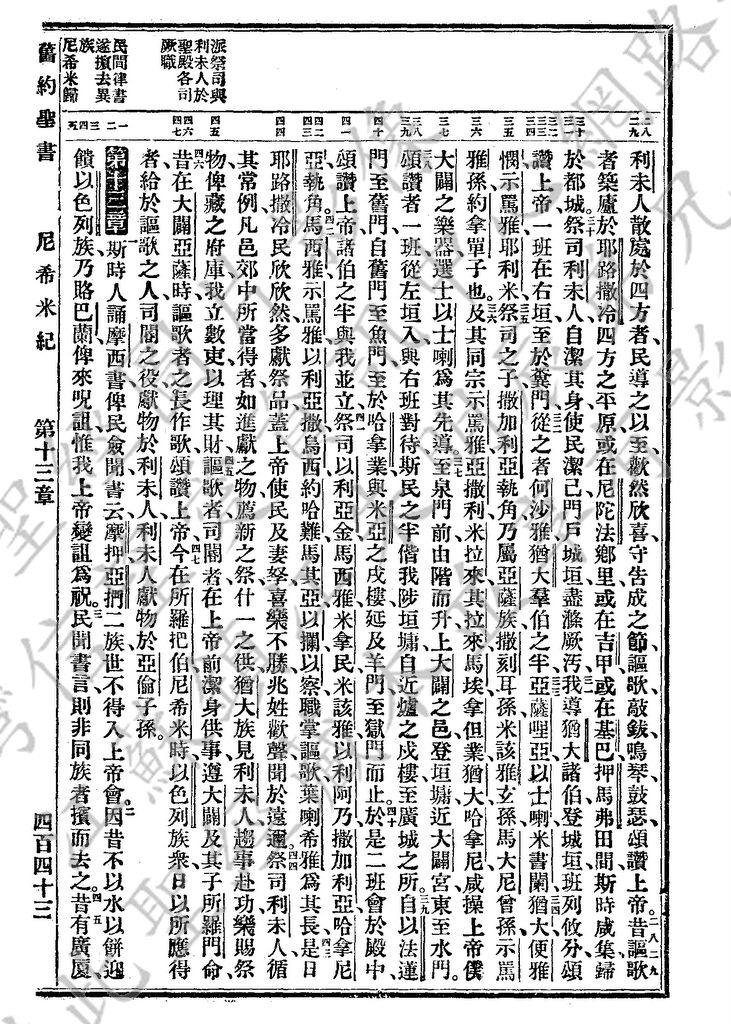 利未人散處於四方者民導之以至歡然欣喜守告成之節謳歌敲鈸鳴琴鼓瑟頌讚上帝昔謳歌
者築廬於耶路撒冷四方之平原或在尼陀法鄉里或在吉甲或在基巴押馬弗田間斯時咸集歸
於都城祭司利未人自潔其身使民潔己門戶城垣盡滌厥汚我導猶大諸伯登城垣班列攸分頌
讚上帝一班在右垣至於糞門從之者何沙雅猶大羣伯之半亞薩哩亞以士喇米書闌猶大便雅
憫示罵雅耶利米祭司之子撒加利亞執角乃屬亞薩族撒刻耳孫米該雅玄孫馬大尼曾孫示罵
雅孫約拿單子也及其同宗示罵雅亞撒利米拉來其拉來馬埃拿但業猶大哈拿尼咸操上帝僕
大闢之樂器選士以士喇爲其先導至泉門前由階而升上大闢之邑登垣墉近大闢宮東至水門
頌讚者一班從左垣入與右班對待斯民之半偕我陟垣墉自近爐之戍樓至廣城之所自以法蓮
門至舊門自舊門至魚門至於哈拿業與米亞之戍樓延及羊門至獄門而止於是二班會於殿中
頌讚上帝諸伯之半與我並立祭司以利亞金馬西雅米拿民米該雅以利阿乃撒加利亞哈拿尼
亞執角馬西雅示罵雅以利亞撒烏西約哈難馬其亞以攔以察職掌謳歌葉喇希雅爲其長是日
耶路撒冷民欣欣然多獻祭品蓋上帝使民及妻孥喜樂不勝兆姓歡聲聞於遠邇祭司利未人循
其常例凡邑郊中所當得者如進獻之物薦新之祭什一之供猶大族見利未人趨事赴功樂賜祭
物俾藏之府庫我立數吏以理其財謳歌者司閽者在上帝前潔身供事遵大闢及其子所羅門命
昔在大闢亞薩時謳歌者之長作歌頌讚上帝今在所羅把伯尼希米時以色列族衆日以所應得
者給於謳歌之人司閽之役獻物於利未人利未人獻物於亞倫子孫
第十三章 斯時人誦摩西書俾民僉聞書云摩押亞捫二族世不得入上帝會因昔不以水以餅迎
饋以色列族乃賂巴蘭俾來呪詛惟我上帝變詛爲祝民聞書言則非同族者擯而去之昔有廣廈
派祭司與
利未人於
聖殿各司
厥職
民間律書
遂擯去異
族
尼希米歸
舊約聖書 尼希米紀 第十三章 四百四十三